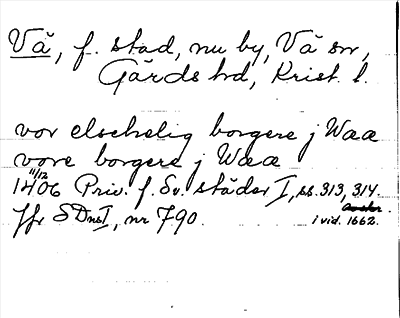 Vä, f. stad, nu by, Vä sn,
Gärds hd, Krist. l.
vor elschelig borgere j Waa
vore borgere j Waa
11/12
1406 Priv. f. Sv. städer I, ss. 313, 314.
Jfr SDns I, nr 790. i vid. 1662.